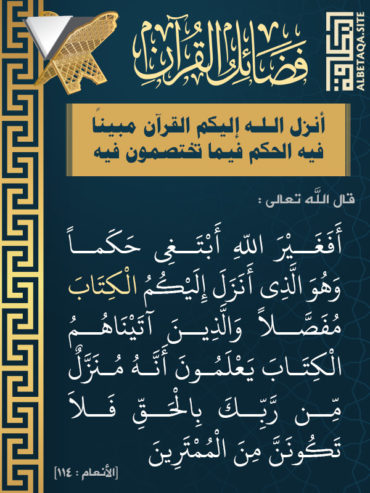 فضائل القرآن
البطاقة
ALBETAQA.SITE
أنزل الله إليكم القرآن مبيناً
فيه الحكم فيما تختصمون فيه
قال الله تعالى :
أَفَغَيْرَ اللَّهِ أَبْتَغِي حَكَمــاً
وَهُوَ الَّذِي أَنزَلَ إِلَيْكُمُ الْكِتَابَ
مُفَصَّــلاً وَالَّذِيــنَ آتَيْنَاهُــمُ
الْكِتَــابَ يَعْلَمُــونَ أَنَّــهُ مُنَــزَّلٌ
مِّــن رَّبِّــكَ بِالْحَــقِّ فَــلاَ
تَكُونَنَّ مِنَ الْمُمْتَرِينَ
[الأنعام : ١١٤]